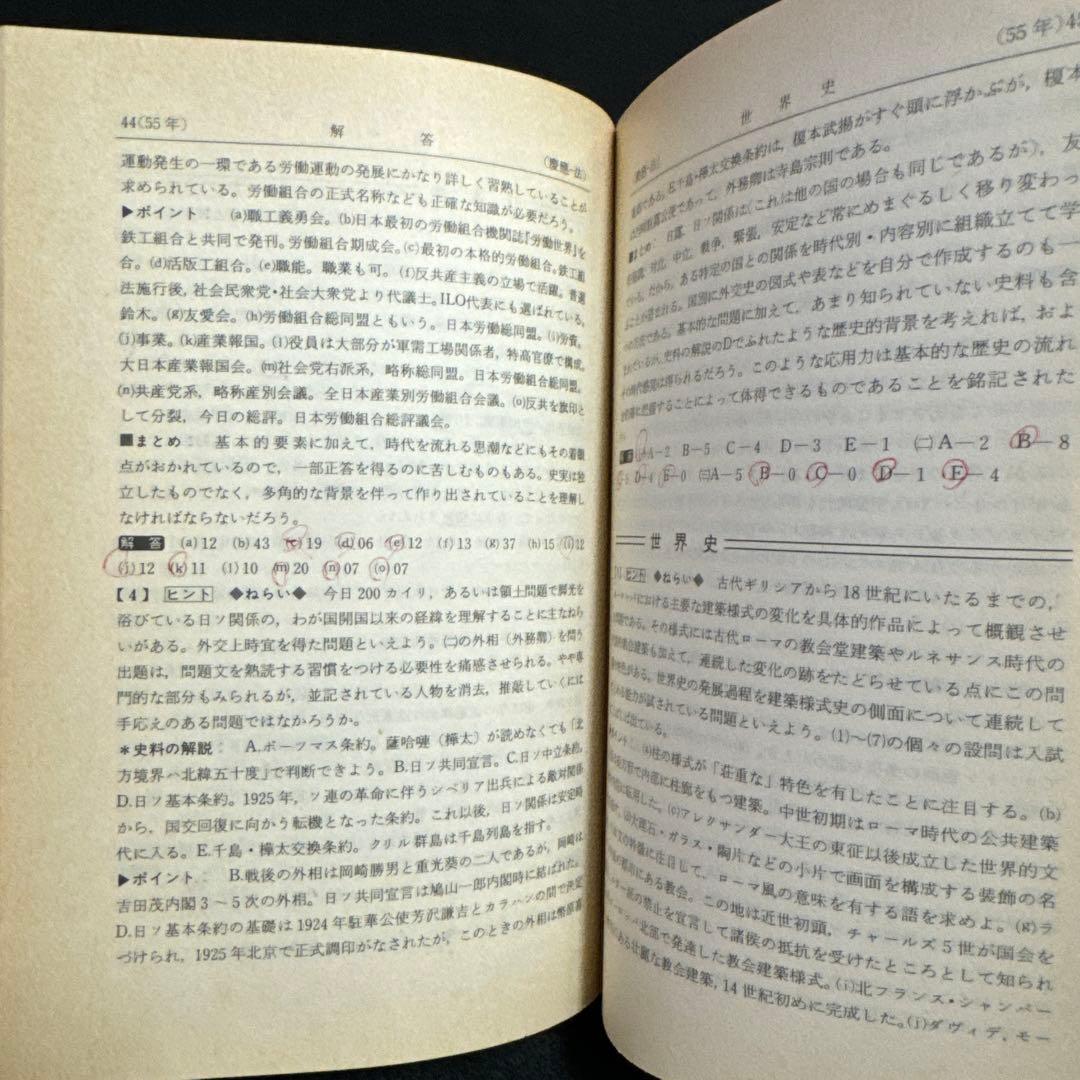 44(55年)
解答
(慶應-法)
運動発生の一環である労働運動の発展にかなり詳しく習熟していることが
求められている。労働組合の正式名称なども正確な知識が必要だろう。
▶ポイント (a)職工義勇会。(b)日本最初の労働組合機関誌『労働世界』を
鉄工組合と共同で発刊。労働組合期成会。(c)最初の本格的労働組合。鉄工組
合。(d)活版工組合。(e)職能。職業も可。(f)反共産主義の立場で活躍。普選
法施行後,社会民衆党・社会大衆党より代議士。ILO代表にも選ばれている。
鈴木。(g)友愛会。(h)労働組合総同盟ともいう。日本労働総同盟。(i)労資。
(j)事業。(k)産業報国。(l)役員は大部分が軍需工場関係者,特高官僚で構成。
大日本産業報国会。(m)社会党右派系,略称総同盟。日本労働組合総同盟。
(n)共産党系,略称産別会議。全日本産業別労働組合会議。(o)反共を旗印と
して分裂,今日の総評。日本労働組合総評議会。
■まとめ 基本的要素に加えて,時代を流れる思潮などにもその着眼
点がおかれているので,一部正答を得るのに苦しむものもある。史実は独
立したものでなく,多角的な背景を伴って作り出されていることを理解し
なければならないだろう。
解答 (a)12 (b)43 (c)19 (d)06 (e)12 (f)13 (g)37 (h)15 (i)12
(j)12 (k)11 (l)10 (m)20 (n)07 (o)07
【4】 ヒント ◆ねらい◆ 今日200カイリ,あるいは領土問題で脚光を
浴びている日ソ関係の,わが国開国以来の経緯を理解することに主なねら
いがある。外交上時宜を得た問題といえよう。㈡の外相(外務卿)を問う
出題は,問題文を熟読する習慣をつける必要性を痛感させられる。やや専
門的な部分もみられるが,並記されている人物を消去,推敲していくには
手応えのある問題ではなかろうか。
*史料の解説: A.ポーツマス条約。薩哈嗹(樺太)が読めなくても「北
方境界ハ北緯五十度」で判断できよう。B.日ソ共同宣言。C.日ソ中立条約。
D.日ソ基本条約。1925年,ソ連の革命に伴うシベリア出兵による敵対関係
から,国交回復に向かう転機となった条約。これ以後,日ソ関係は安定時
代に入る。E.千島・樺太交換条約。クリル群島は千島列島を指す。
▶ポイント B.戦後の外相は岡崎勝男と重光葵の二人であるが,岡崎は
吉田茂内閣3~5次の外相。日ソ共同宣言は鳩山一郎内閣時に結ばれた。
D.日ソ基本条約の基礎は1924年駐華公使芳沢謙吉とカラハンの間で決定
づけられ,1925年北京で正式調印がなされたが,このときの外相は幣原喜
(55年)
世界史
である。E.千島・樺太交換条約は,榎本武揚がすぐ頭に浮かぶが,榎本
であって,外務卿は寺島宗則である。
日露,日ソ関係は(これは他の国の場合も同じであるが),友
対立,中立,戦争,緊張,安定など常にめまぐるしく移り変わっ
だから,ある特定の国との関係を時代別・内容別に組織立てて学
国別に外交史の図式や表などを自分で作成するのも一
である。基本的な問題に加えて,あまり知られていない史料も含
史料の解説のDでふれたような歴史的背景を考えれば,およ
得られるだろう。このような応用力は基本的な歴史の流れ
することによって体得できるものであることを銘記された
A-2 B-5 C-4 D-3 E-1 ㈡A-2 B-8
D-4 E-0 ㈢A-5 B-0 C-0 D-1 E-4
世界史
ヒント ◆ねらい◆ 古代ギリシアから18世紀にいたるまでの,
における主要な建築様式の変化を具体的作品によって概観させ
である。その様式には古代ローマの教会堂建築やルネサンス時代の
建築も加えて,連続した変化の跡をたどらせている点にこの問
ある。世界史の発展過程を建築様式史の側面について連続して
能力が試されている問題といえよう。(1)~(7)の個々の設問は入試
出ている。
(a)柱の様式が「荘重な」特色を有したことに注目する。(b)
で内部に柱廊をもつ建築。中世初期はローマ時代の公共建築
した。(c)アレクサンダー大王の東征以後成立した世界的文
大理石・ガラス・陶片などの小片で画面を構成する装飾の名
に注目して,ローマ風の意味を有する語を求めよ。(g)ラ
にある教会。この地は近世初頭,チャールズ5世が国会を
の禁止を宣言して諸侯の抵抗を受けたところとして知られ
北部で発達した教会建築様式。(i)北フランス・シャンパー
ある壮麗な教会建築,14世紀初めに完成した。(j)ダヴィデ,モー